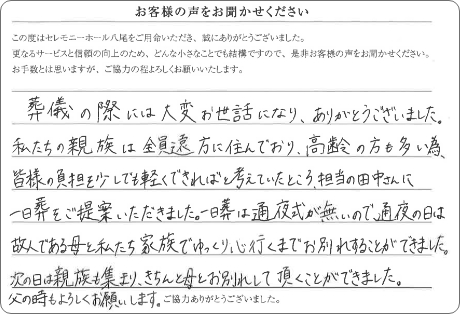 お客様の声をお聞かせください
この度はセレモニーホール八尾をご用命いただき、誠にありがとうございました。
更なるサービスと信頼の向上のため、どんな小さなことでも結構ですので、是非お客様の声をお聞かせください。
お手数とは思いますが、ご協力の程よろしくお願いいたします。
葬儀の際には大変お世話になり、ありがとうございました。
私たちの親族は全員遠方に住んでおり、高齢の方も多い為、
皆様の負担を少しでも軽くできればと考えていたところ、担当の田中さんに
一日葬をご提案いただきました。一日葬は通夜式が無いので、通夜の日は
故人である母と私たち家族でゆっくり、心行くまでお別れすることができました。
次の日は親族も集まり、きちんと母とお別れして頂くことができました。
父の時もよろしくお願いします。ご協力ありがとうございました。